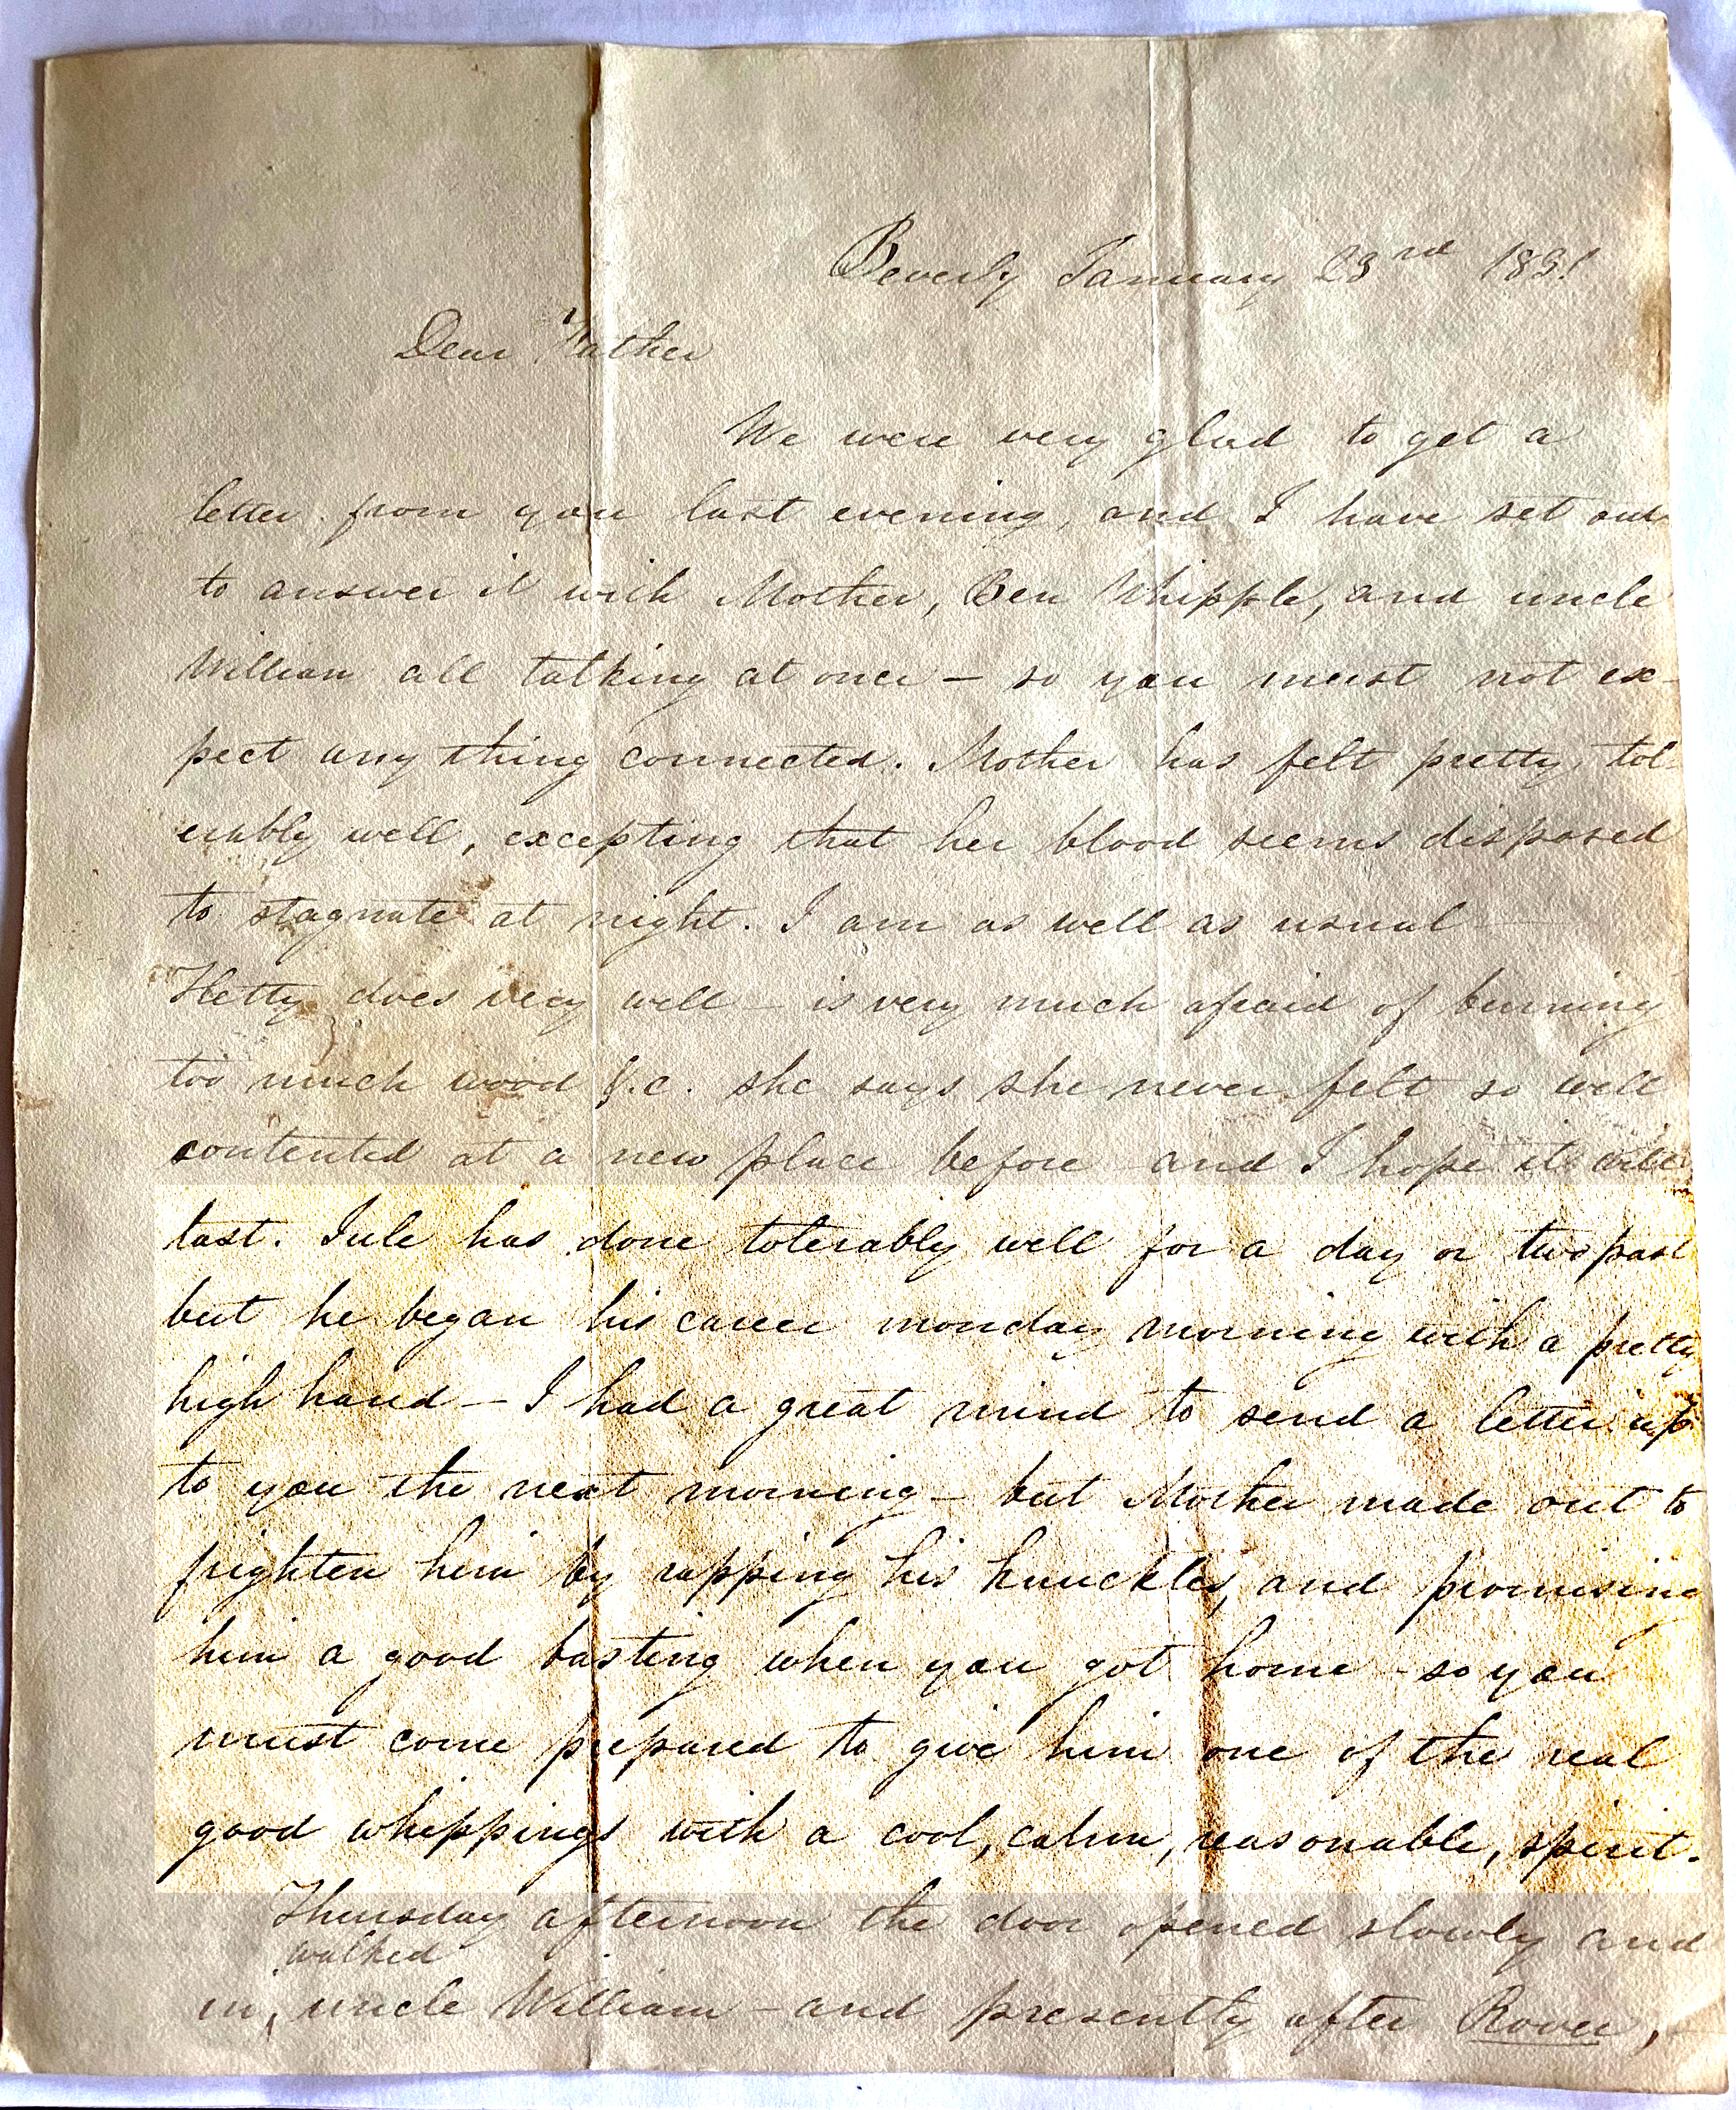 Beverly January 23rd 1831
Dear Father
We were very glad to get a
letter from you last evening, and I have set out
to answer it with Mother, Ben Whipple, and uncle
William all talking at once – so you must not ex-
pect any thing connected. Mother has felt pretty tol-
erably well, excepting that her blood seems disposed
to stagnate at night. I am as well as usual
Hetty does very well – is very much afraid of burning
too much wood &.c. she says she never felt so well
contented at a new place before and I hope it will
last. Jule has done tolerably well for a day or two past
but he began his career monday morning with a pretty
high hand – I had a great mind to send a letter up
to you the next morning – but Mother made out to
frighten him by rapping his knuckles, and promising
him a good basting when you got home – so you
must come prepared to give him one of the real
good whippings with a cool, calm, reasonable, spirit.
Thursday afternoon the door opened slowly and
walked
in, uncle William – and presently after Rover,